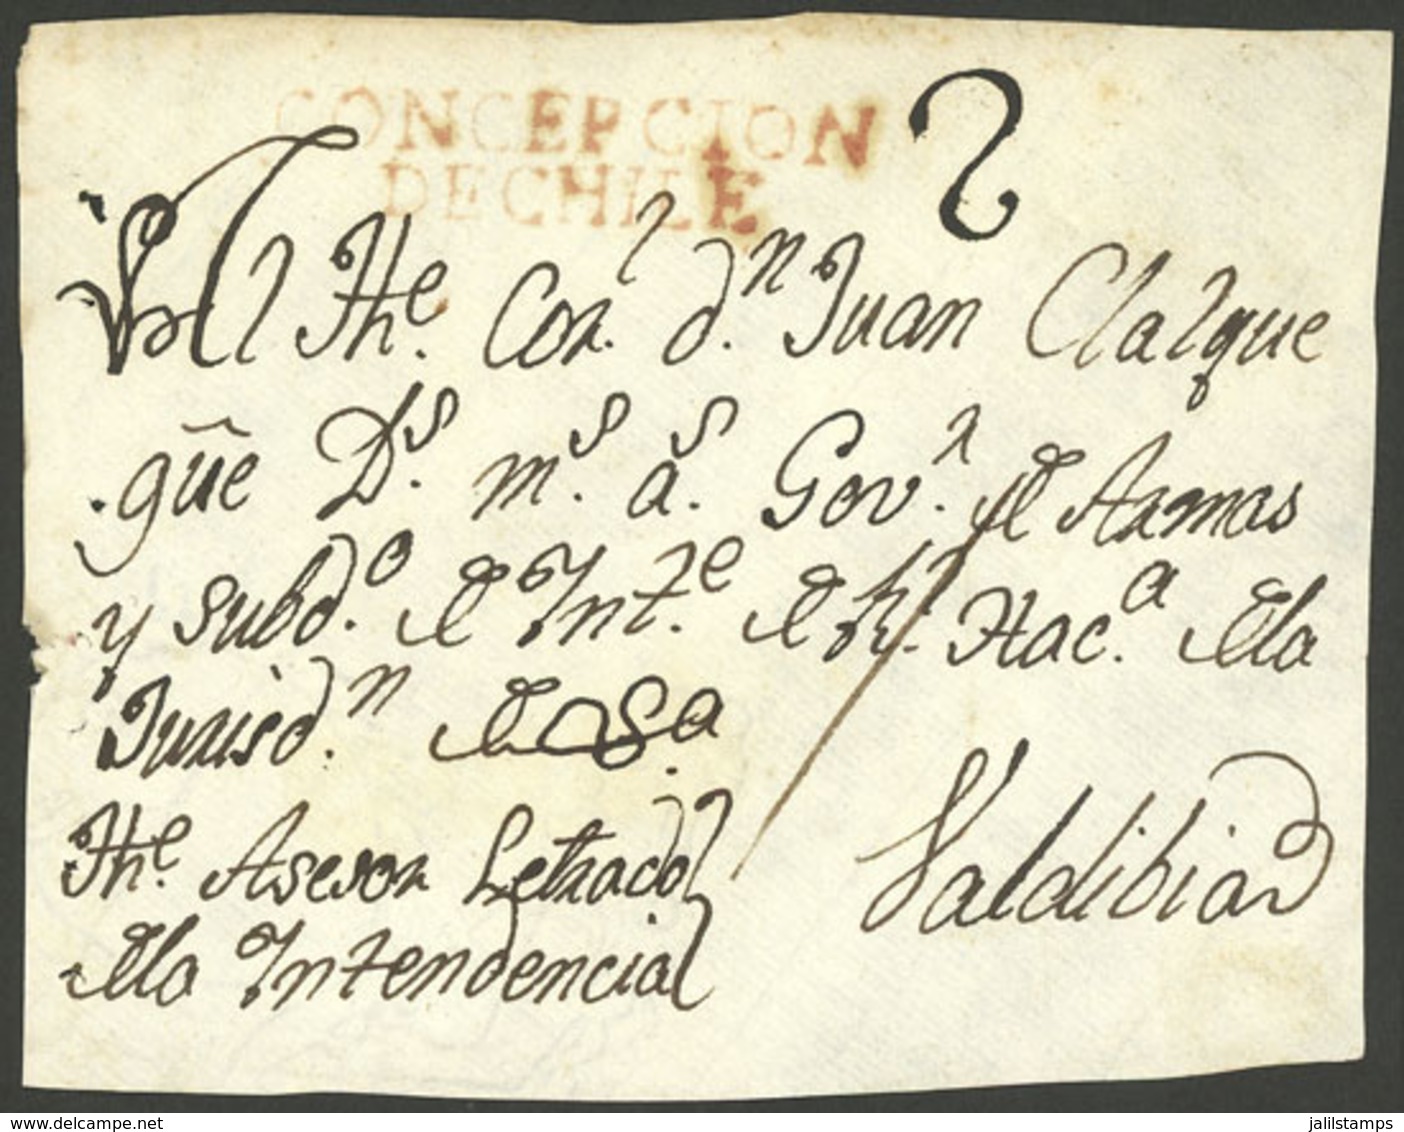 CONCEPCION
DE CHILE
2
Al The. Corl. dn. Juan Clarque
que Ds. ms. as. Govr. de Armas
y subdo. de Inte. de Rl. Haca. dela
Jurisdn. de
The. Asesor Letrado
dela Intendencia
Valdibia
www.delcampe.net
jalilstamps